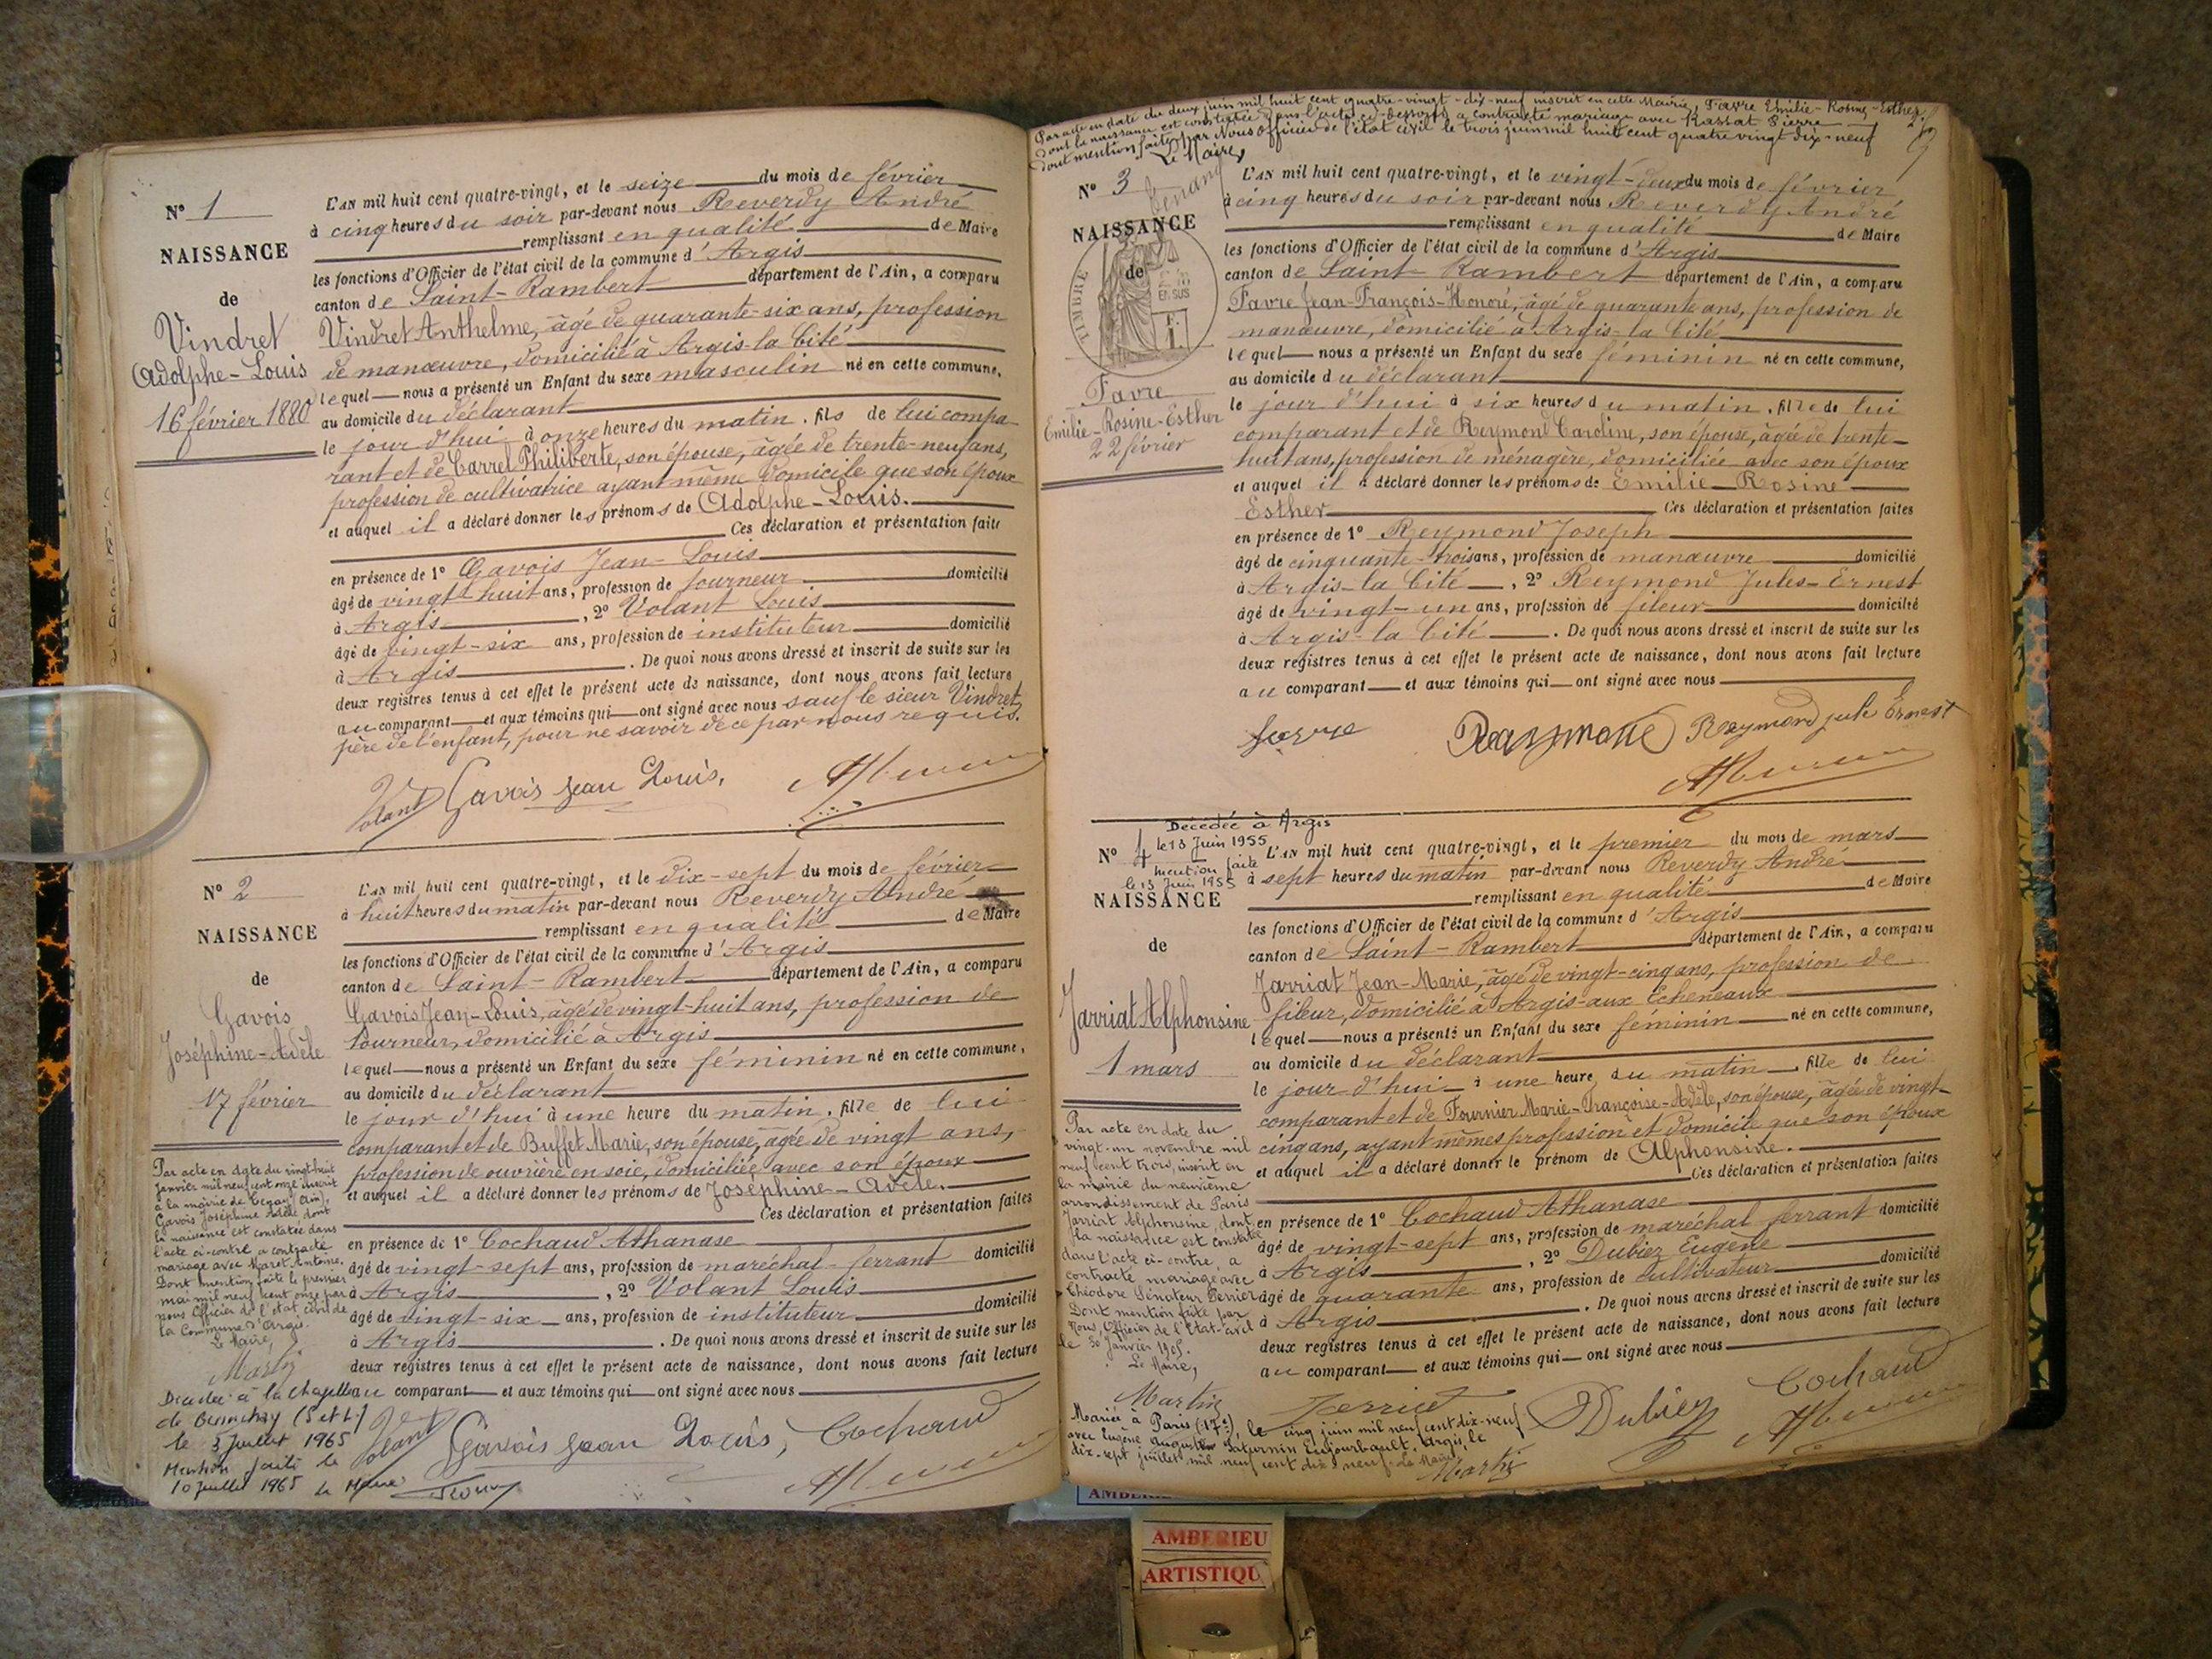 N° 1
NAISSANCE
de
Vindret
Adolphe-Louis
16 février 1880
L'AN mil huit cent quatre-vingt, et le seize du mois de février
à cinq heures du soir par-devant nous Reverdy André
remplissant en qualité de Maire
les fonctions d'Officier de l'état civil de la commune d'Argis
canton de Saint-Rambert département de l'Ain, a comparu
Vindret Anthelme, âgé de quarante-six ans, profession
de manœuvre, domicilié à Argis-la Cité
lequel nous a présenté un Enfant du sexe masculin né en cette commune,
au domicile du déclarant
le jour d'hui à onze heures du matin, fils de lui compa-
rant et de Carrel Philiberte, son épouse, âgée de trente-neuf ans,
profession de cultivatrice ayant même domicile que son époux
et auquel il a déclaré donner les prénoms de Adolphe-Louis.
Ces déclaration et présentation faites
en présence de 1° Gavois Jean-Louis
âgé de vingt-huit ans, profession de tourneur domicilié
à Argis, 2° Volant Louis
âgé de vingt-six ans, profession de instituteur domicilié
à Argis. De quoi nous avons dressé et inscrit de suite sur les
deux registres tenus à cet effet le présent acte de naissance, dont nous avons fait lecture
au comparant et aux témoins qui ont signé avec nous sauf le sieur Vindret,
père de l'enfant, pour ne savoir de ce par nous requis.
Volant Gavois Jean Louis,
N° 2
NAISSANCE
de
Gavois
Joséphine-Adèle
17 février
L'AN mil huit cent quatre-vingt, et le dix-sept du mois de février
à huit heures du matin par-devant nous Reverdy André
remplissant en qualité de Maire
les fonctions d'Officier de l'état civil de la commune d'Argis
canton de Saint-Rambert département de l'Ain, a comparu
Gavois Jean-Louis, âgé de vingt-huit ans, profession de
tourneur, domicilié à Argis
lequel nous a présenté un Enfant du sexe féminin né en cette commune,
au domicile du déclarant
le jour d'hui à une heure du matin, fille de lui
comparant et de Buffet Marie, son épouse, âgée de vingt ans,
profession de ouvrière en soie, domiciliée avec son époux
et auquel il a déclaré donner les prénoms de Joséphine-Adèle.
Ces déclaration et présentation faites
en présence de 1° Cochaud Athanase
âgé de vingt-sept ans, profession de maréchal-ferrant domicilié
à Argis, 2° Volant Louis
âgé de vingt-six ans, profession de instituteur domicilié
à Argis. De quoi nous avons dressé et inscrit de suite sur les
deux registres tenus à cet effet le présent acte de naissance, dont nous avons fait lecture
au comparant et aux témoins qui ont signé avec nous
Volant Gavois Jean Louis, Cochaud
Par acte en date du vingt-huit
janvier mil neuf cent onze inscrit
à la mairie de Tenay (Ain),
Gavois Joséphine Adèle dont
la naissance est constatée dans
l'acte ci-contre, a contracté
mariage avec Maret Antoine.
Dont mention faite le premier
mai mil neuf cent onze par
nous Officier de l'état civil de
la Commune d'Argis.
Le Maire,
Martin
Décédée à la Chapelle
de (S et L)
le 3 Juillet 1965
Mention faite le
10 Juillet 1965 Le Maire
Par acte en date du deux juin mil huit cent quatre-vingt-dix-neuf inscrit en cette Mairie, Favre Emilie-Rosine-Esther,
dont la naissance est constatée dans l'acte ci-dessous a contracté mariage avec Rassat Pierre
dont mention faite par Nous Officier de l'état civil le trois juin mil huit cent quatre vingt dix-neuf
Le Maire,
N° 3
NAISSANCE
de
TIMBRE
EN SUS
Favre
Emilie-Rosine-Esther
22 février
L'AN mil huit cent quatre-vingt, et le vingt-deux du mois de février
à cinq heures du soir par-devant nous Reverdy André
remplissant en qualité de Maire
les fonctions d'Officier de l'état civil de la commune d'Argis
canton de Saint-Rambert département de l'Ain, a comparu
Favre Jean-François-Honoré, âgé de quarante ans, profession de
manœuvre, domicilié à Argis-la Cité
lequel nous a présenté un Enfant du sexe féminin né en cette commune,
au domicile du déclarant
le jour d'hui à six heures du matin, fille de lui
comparant et de Reymond Caroline, son épouse, âgée de trente-
huit ans, profession de ménagère, domiciliée avec son époux
et auquel il a déclaré donner les prénoms de Emilie-Rosine
Esther Ces déclaration et présentation faites
en présence de 1° Reymond Joseph
âgé de cinquante-trois ans, profession de manœuvre domicilié
à Argis-la Cité, 2° Reymond Jules-Ernest
âgé de vingt-un ans, profession de fileur domicilié
à Argis-la Cité. De quoi nous avons dressé et inscrit de suite sur les
deux registres tenus à cet effet le présent acte de naissance, dont nous avons fait lecture
au comparant et aux témoins qui ont signé avec nous
Favre Reymond Reymond jule Ernest
Décédée à Argis
le 13 Juin 1955
mention faite
le 13 Juin 1955
N° 4
NAISSANCE
de
Jarriat Alphonsine
1 mars
L'AN mil huit cent quatre-vingt, et le premier du mois de mars
à sept heures du matin par-devant nous Reverdy André
remplissant en qualité de Maire
les fonctions d'Officier de l'état civil de la commune d'Argis
canton de Saint-Rambert département de l'Ain, a comparu
Jarriat Jean-Marie, âgé de vingt-cinq ans, profession de
fileur, domicilié à Argis-aux Echeneaux
lequel nous a présenté un Enfant du sexe féminin né en cette commune,
au domicile du déclarant
le jour d'hui à une heure du matin, fille de lui
comparant et de Fournier Marie-Françoise-Adèle, son épouse, âgée de vingt-
cinq ans, ayant mêmes profession et domicile que son époux
et auquel il a déclaré donner le prénom de Alphonsine.
Ces déclaration et présentation faites
en présence de 1° Cochaud Athanase
âgé de vingt-sept ans, profession de maréchal ferrant domicilié
à Argis, 2° Dubiez Eugène
âgé de quarante ans, profession de cultivateur domicilié
à Argis. De quoi nous avons dressé et inscrit de suite sur les
deux registres tenus à cet effet le présent acte de naissance, dont nous avons fait lecture
au comparant et aux témoins qui ont signé avec nous
Jarriat Dubiez Cochaud
Par acte en date du
vingt-un novembre mil
neuf cent trois, inscrit en
la mairie du neuvième
arrondissement de Paris
Jarriat Alphonsine, dont
la naissance est constatée
dans l'acte ci-contre, a
contracté mariage avec
Théodore Sénateur
Dont mention faite par
Nous, Officier de l'Etat-civil
le 30 Janvier 1905.
Le Maire,
Martin
Mariée à Paris (17e), le cinq juin mil neuf cent dix-neuf
avec Eugène Augustin Saturnin Enjourbault. Argis, le
dix-sept juillet mil neuf cent dix neuf. Le Maire,
Martin
AMBERIEU
ARTISTIQU